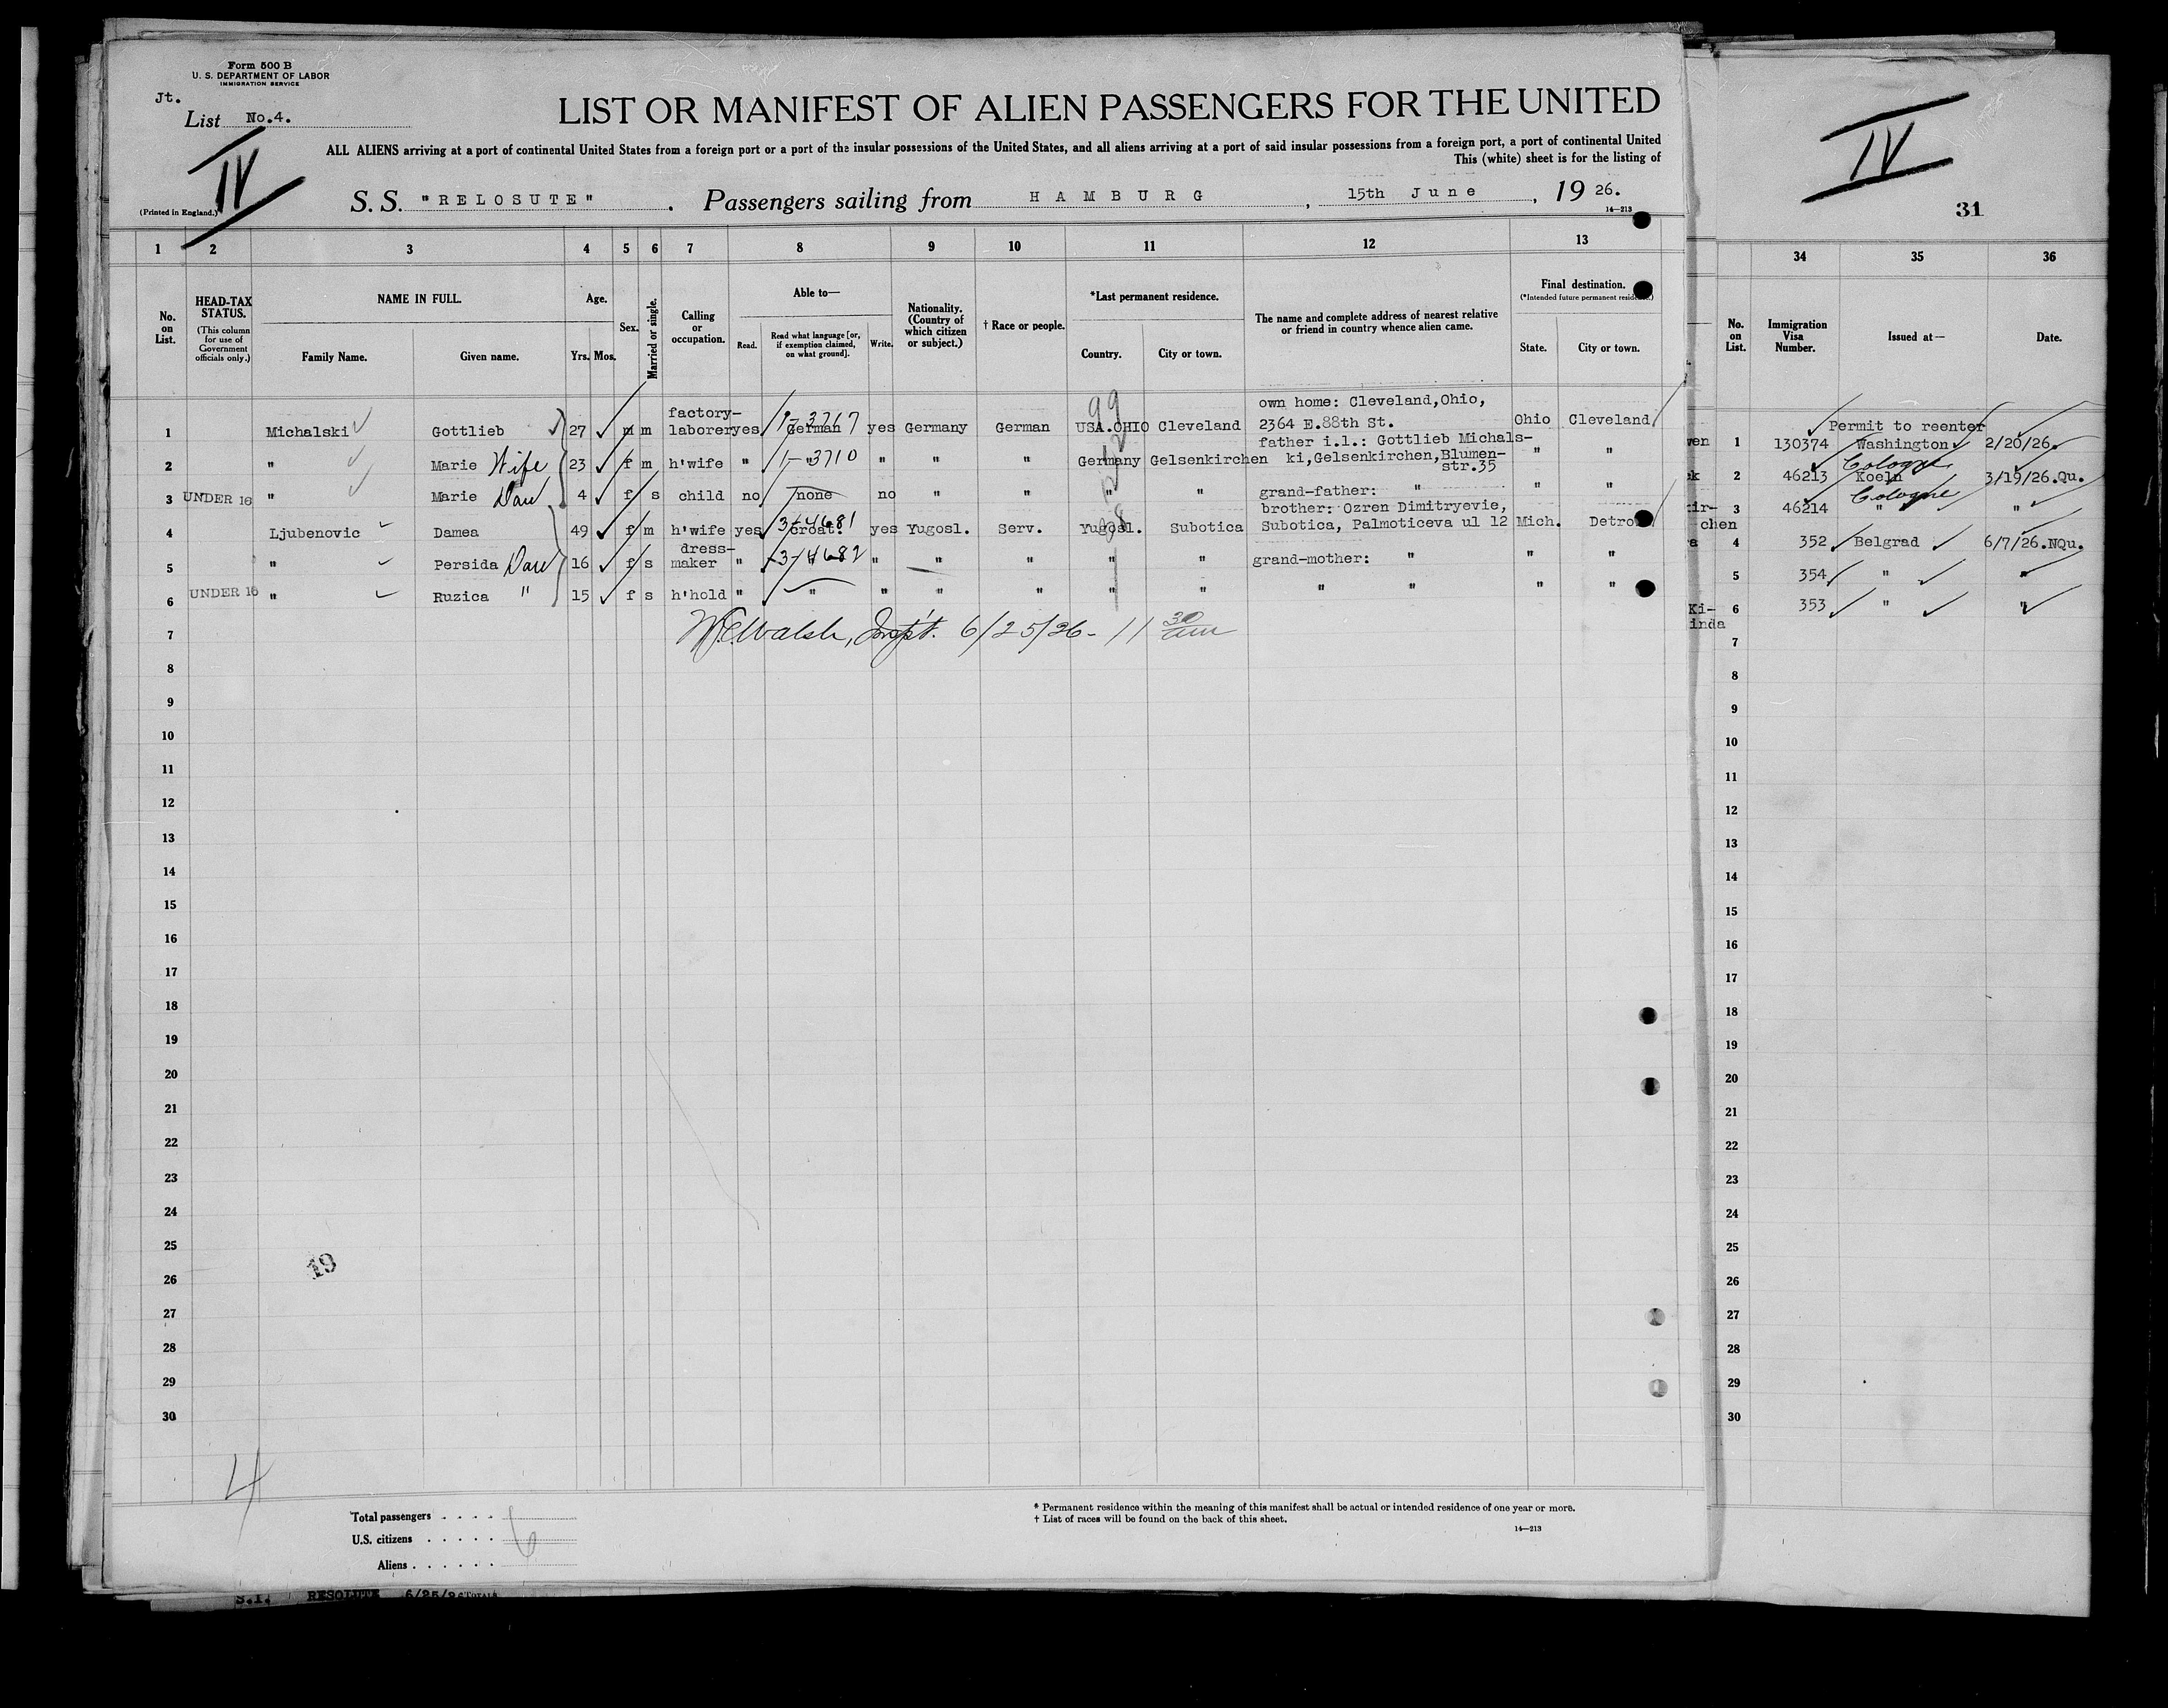 Form 500 B
U. S. DEPARTMENT OF LABOR
IMMIGRATION SERVICE
Jt.
List No.4.
IV
(Printed in England.)
LIST OR MANIFEST OF ALIEN PASSENGERS FOR THE UNITED
ALL ALIENS arriving at a port of continental United States from a foreign port or a port of the insular possessions of the United States, and all aliens arriving at a port of said insular possessions from a foreign port, a port of continental United
This (white) sheet is for the listing of
S. S. "RELOSUTE" . Passengers sailing from HAMBURG , 15th June , 19 26.
14—213
IV
31
1 2 3 4 5 6 7 8 9 10 11 12 13
34 35 36
No. on List.
HEAD-TAX STATUS.
(This column for use of Government officials only.)
NAME IN FULL.
Family Name. Given name.
Age.
Yrs. Mos.
Sex.
Married or single.
Calling or occupation.
Able to—
Read. Read what language [or, if exemption claimed, on what ground]. Write.
Nationality. (Country of which citizen or subject.)
† Race or people.
*Last permanent residence.
Country. City or town.
The name and complete address of nearest relative or friend in country whence alien came.
Final destination.
(*Intended future permanent
State. City or town.
No. on List.
Immigration Visa Number.
Issued at—
Date.
99
1 Michalski Gottlieb 27 m m factory-laborer yes German 1-3717 yes Germany German USA.OHIO Cleveland own home: Cleveland,Ohio, 2364 E.88th St. Ohio Cleveland
2 " Marie Wife 23 f m h'wife " " 1-3710 " " " Germany Gelsenkirchen father i.l.: Gottlieb Michalski,Gelsenkirchen,Blumen-str.35 " "
3 UNDER 16 " Marie Dau 4 f s child no none no " " " " grand-father: " " "
4 Ljubenovic Damea 49 f m h'wife yes croat. 3-4681 yes Yugosl. Serv. Yugosl. Subotica brother: Ozren Dimitryevie, Subotica, Palmoticeva ul 12 Mich. Detro
5 " Persida Dau 16 f s dress-maker " " 3-4682 " " " " " grand-mother: " " "
6 UNDER 16 " Ruzica " 15 f s h'hold " " " " " " " " " " "
7 Walsh, Insp't. 6/25/26 - 11 30 am
8
9
10
11
12
13
14
15
16
17
18
19
20
21
22
23
24
25
26
27
28
29
30
19
4
1 130374 Permit to reenter Washington 2/20/26.
2 46213 Cologne Koeln 3/19/26.Qu.
3 46214 Cologne " "
4 352 Belgrad 6/7/26.NQu.
5 354 " "
6 353 " "
7
8
9
10
11
12
13
14
15
16
17
18
19
20
21
22
23
24
25
26
27
28
29
30
chen
Ki-
inda
Total passengers . . . .
U.S. citizens . . . . . 6
Aliens . . . . . .
* Permanent residence within the meaning of this manifest shall be actual or intended residence of one year or more.
† List of races will be found on the back of this sheet.
14—213
S.I. RESOLUTE 6/25/26